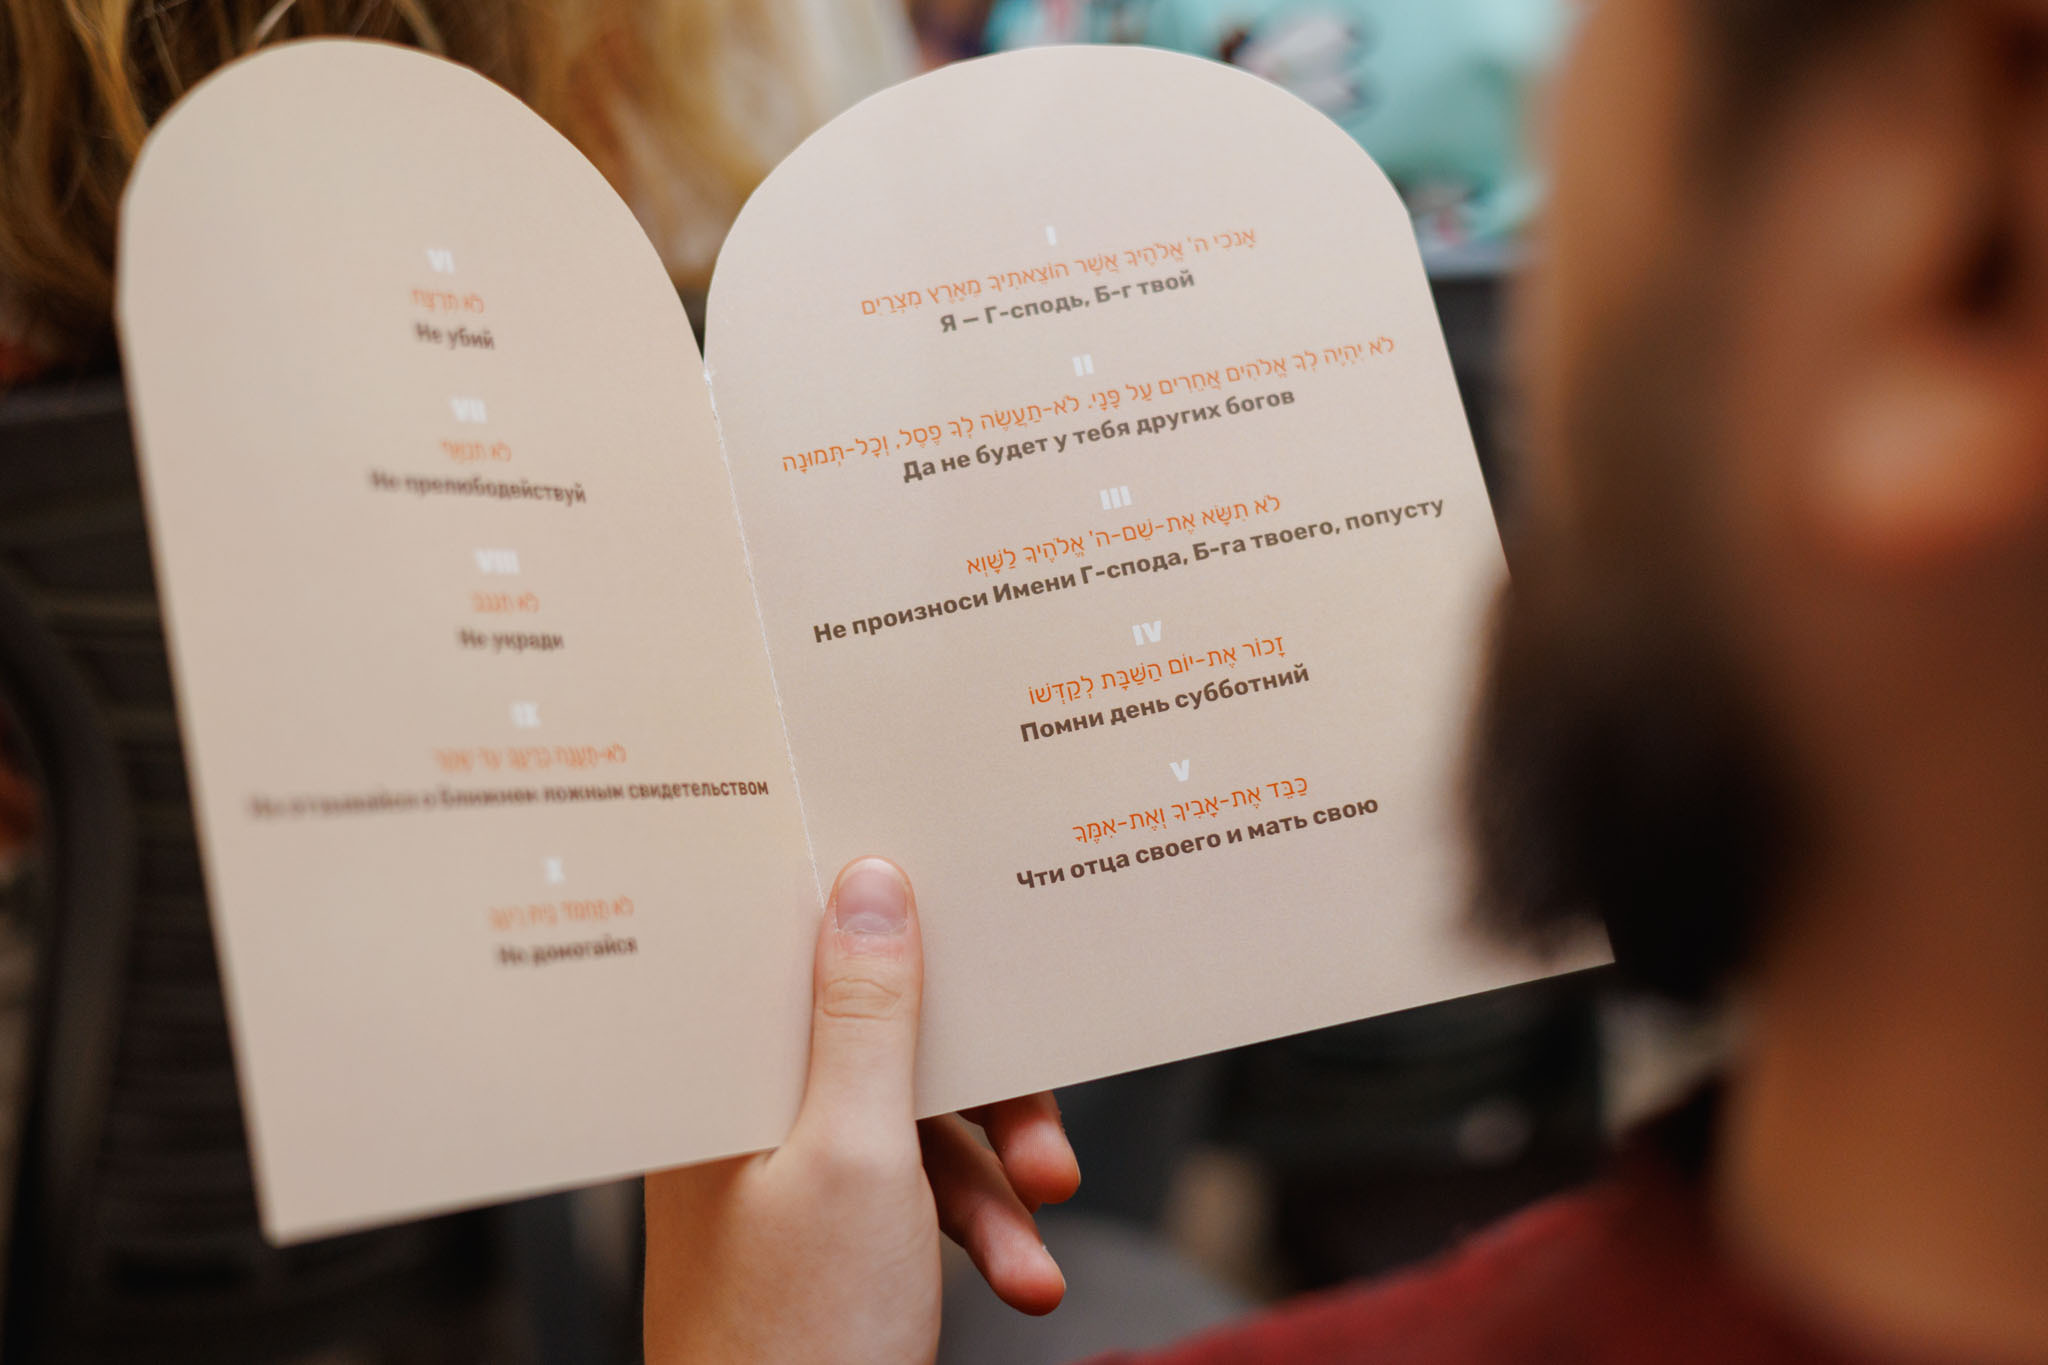 I
אָנֹכִי ה' אֱלֹהֶיךָ אֲשֶׁר הוֹצֵאתִיךָ מֵאֶרֶץ מִצְרַיִם
Я — Г-сподь, Б-г твой
II
לֹא יִהְיֶה לְךָ אֱלֹהִים אֲחֵרִים עַל פָּנָי. לֹא-תַעֲשֶׂה לְךָ פֶסֶל, וְכָל-תְּמוּנָה
Да не будет у тебя других богов
III
לֹא תִשָּׂא אֶת-שֵׁם-ה' אֱלֹהֶיךָ לַשָּׁוְא
Не произноси Имени Г-спода, Б-га твоего, попусту
IV
זָכוֹר אֶת-יוֹם הַשַּׁבָּת לְקַדְּשׁוֹ
Помни день субботний
V
כַּבֵּד אֶת-אָבִיךָ וְאֶת-אִמֶּךָ
Чти отца своего и мать свою
VI
לֹא תִרְצָח
Не убий
VII
לֹא תִנְאָף
Не прелюбодействуй
VIII
לֹא תִגְנֹב
Не укради
IX
לֹא-תַעֲנֶה בְרֵעֲךָ עֵד שָׁקֶר
о ближнем ложным свидетельством
X
לֹא תַחְמֹד בֵּית רֵעֶךָ
Не домогайся